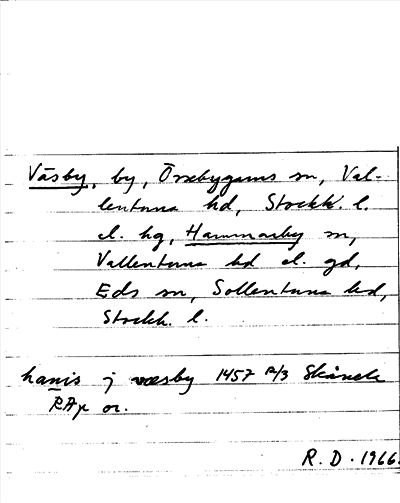 Väsby, by, Össebygarns sn, Val-
lentuna hd, Stockh. l.
el. hg, Hammarby sn,
Vallentuna hd el. gd,
Eds sn, Sollentuna hd,
Stockh. l.
hanis j wæsby 1457 12/3 Skånela
RAp or.
R. D. 1966.